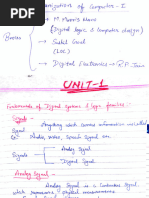 Organization of Computer - I
Books
→ M. Morris Mano
(Digital logic & Computer design)
→ Smbit Goral
(LOC)
→ Digital Electronics - R.P. Jain
UNIT-1
Fundamentals of Digital Systems & logic families :-
Signals - Anything which carries information called
Signal
Ex: Audio, video, speech signal etc.
Signals
Analog Signal
Digital Signal
Analog Signal -
Analog Signal is a Continuous Signal
which represents physical measurements.